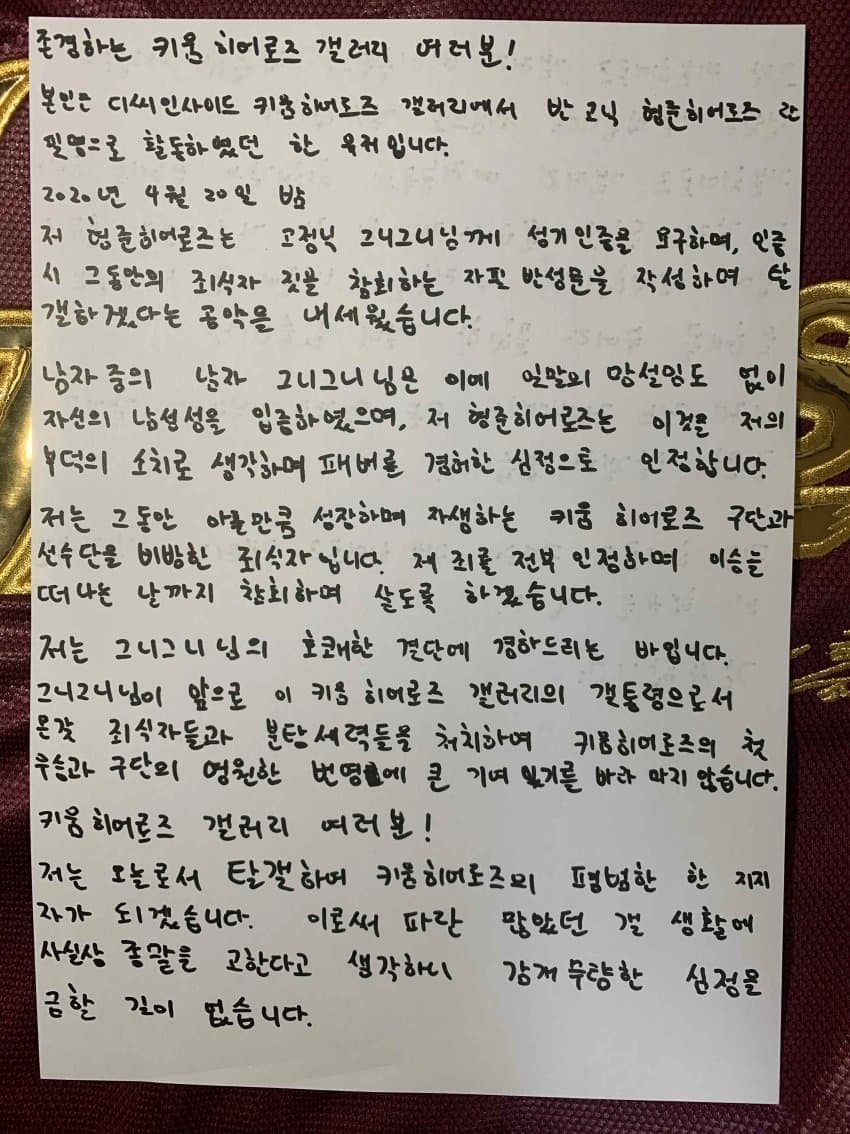 존경하는 키움 히어로즈 갤러리 여러분!
본인은 디씨인사이드 키움히어로즈 갤러리에서 반고닉 형준히어로즈 란
필명으로 활동하였던 한 유저입니다.
2020년 4월 20일 밤
저 형준히어로즈는 고정닉 그니그니님께 성기인증을 요구하며, 인증
시 그동안의 죄식자 짓을 참회하는 자필 반성문을 작성하며 탈
갤하겠다는 공약을 내세웠습니다.
남자 중의 남자 그니그니 님은 이에 일말의 망설임도 없이
자신의 남성성을 입증하였으며, 저 형준히어로즈는 이것을 저의
부덕의 소치로 생각하며 패배를 겸허한 심정으로 인정합니다.
저는 그동안 아놀만큼 성장하며 자생하는 키움 히어로즈 구단과
선수단을 비방한 죄식자입니다. 제 죄를 전부 인정하며 이승을
떠나는 날까지 참회하며 살도록 하겠습니다.
저는 그니그니 님의 호쾌한 결단에 경하드리는 바입니다.
그니그니님이 앞으로 이 키움 히어로즈 갤러리의 갤통령으로서
온갖 죄식자들과 분탕세력들을 처치하여 키움히어로즈의 첫
우승과 구단의 영원한 번영에 큰 기여 있기를 바라 마지 않습니다.
키움 히어로즈 갤러리 여러분!
저는 오늘로서 탈갤하여 키움히어로즈의 평범한 한 지지
자가 되겠습니다. 이로써 파란 많았던 갤 생활에
사실상 종말을 고한다고 생각하니 감개무량한 심정을
금할 길이 없습니다.